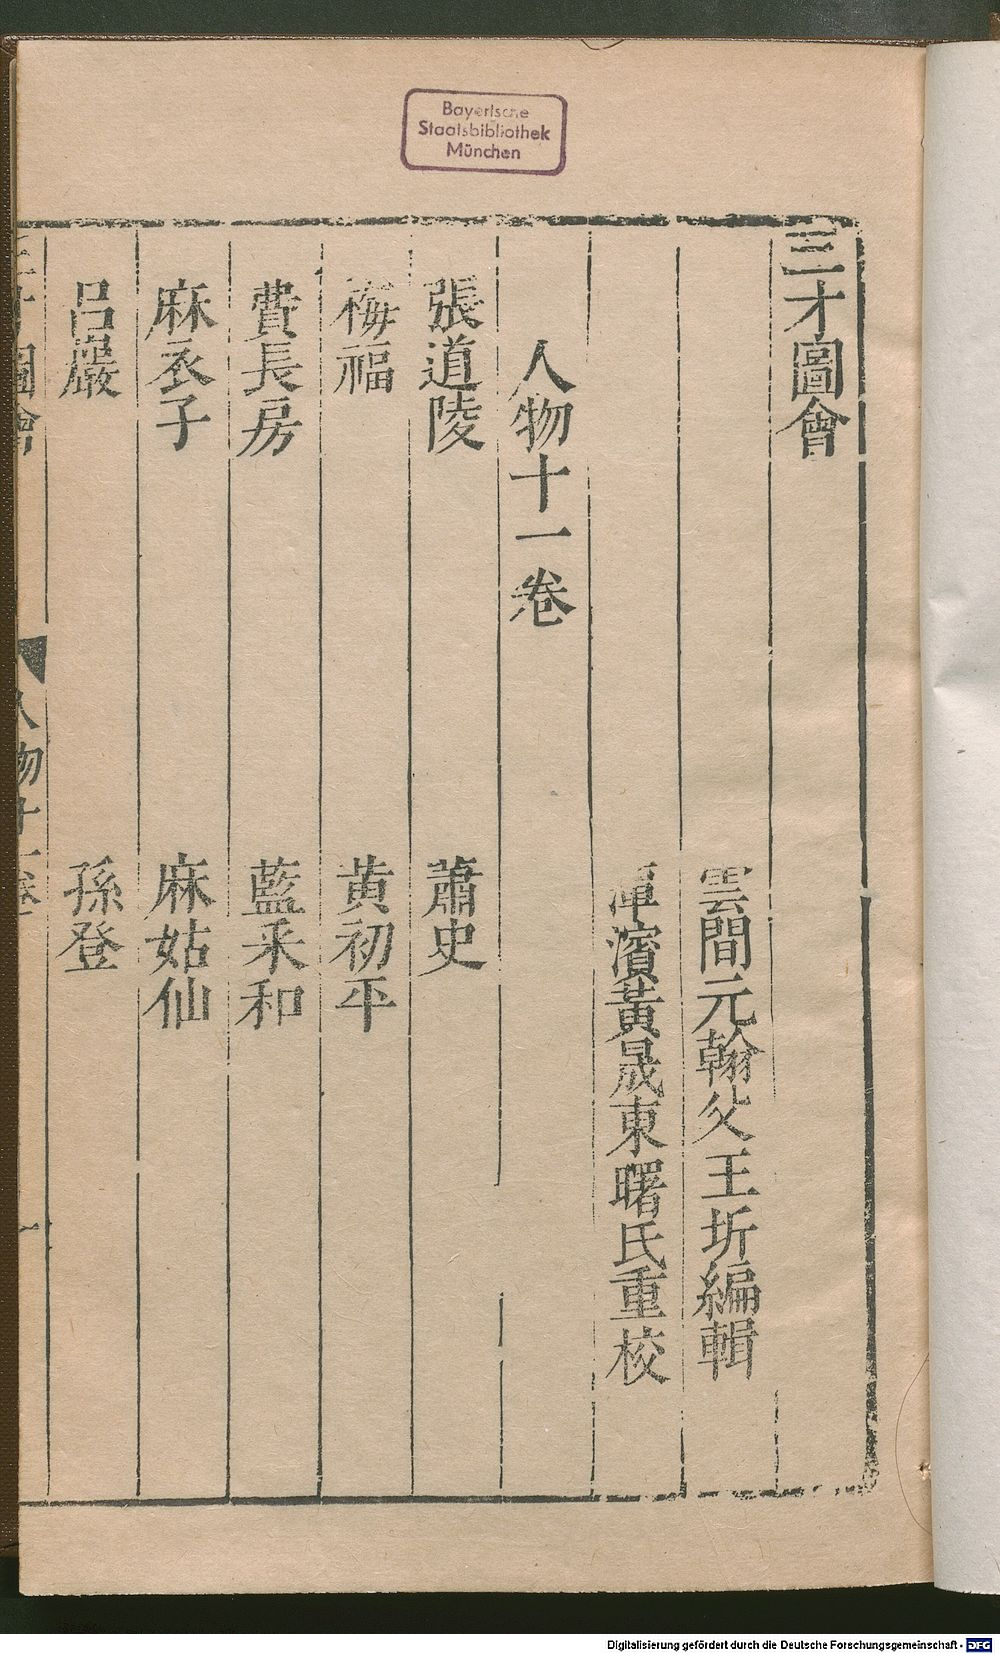 Bayerische
Staatsbibliothek
München
三才圖會
雲間元翰父王圻編輯
潭濱黃晟東曙氏重校
人物十一卷
張道陵 蕭史
梅福 黄初平
費長房 藍采和
麻衣子 麻姑仙
呂巖 孫登
三才圖會 人物十一卷 一
Digitalisierung gefördert durch die Deutsche Forschungsgemeinschaft - DFG